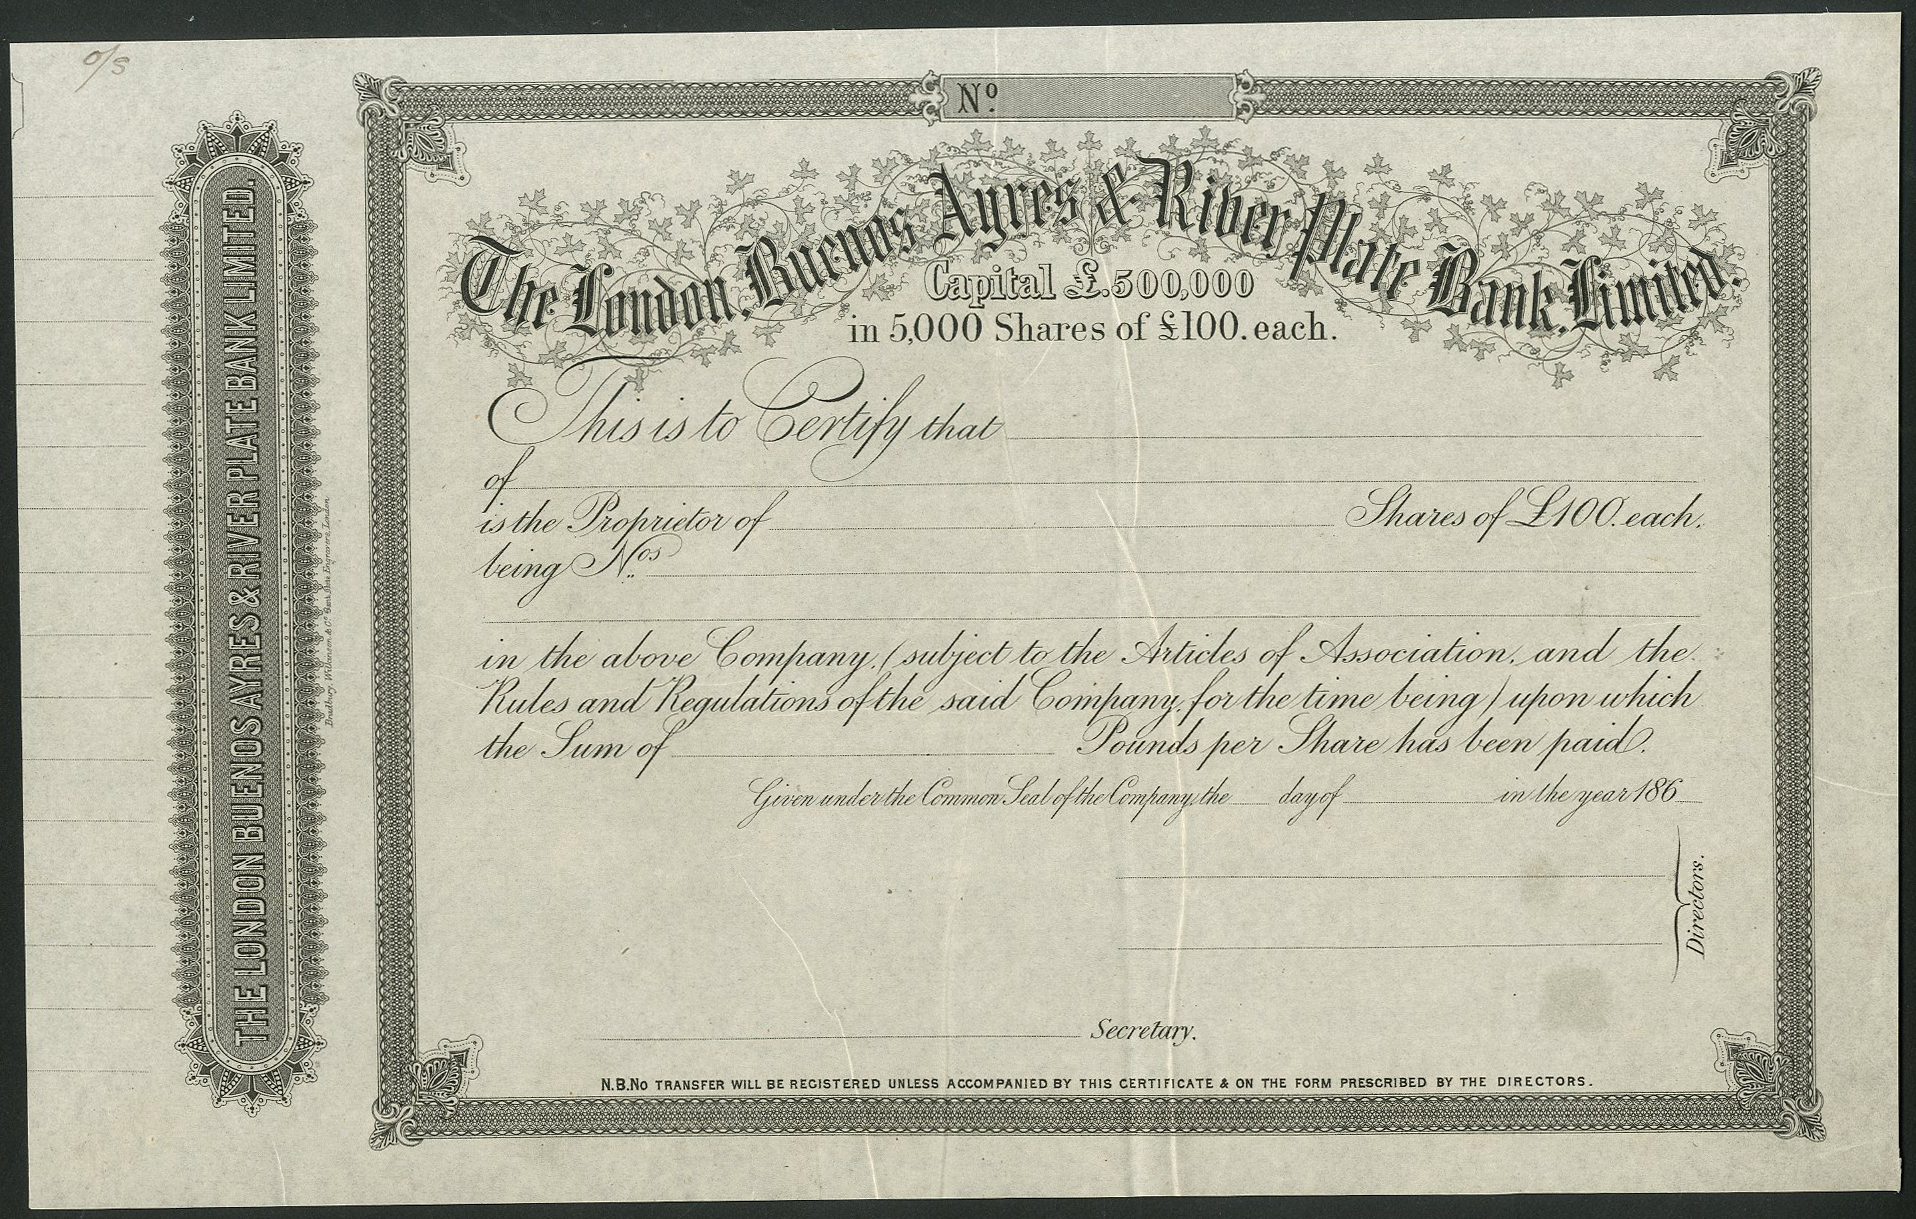 o/s
No.
The London, Buenos Ayres & River Plate Bank, Limited.
Capital £.500,000
in 5,000 Shares of £100. each.
This is to Certify that
of
is the Proprietor of Shares of £100. each.
being Nos.
in the above Company, (subject to the Articles of Association, and the
Rules and Regulations of the said Company, for the time being) upon which
the Sum of Pounds per Share has been paid.
Given under the Common Seal of the Company, the day of in the year 186
Directors.
Secretary.
N.B. No TRANSFER WILL BE REGISTERED UNLESS ACCOMPANIED BY THIS CERTIFICATE & ON THE FORM PRESCRIBED BY THE DIRECTORS.
THE LONDON BUENOS AYRES & RIVER PLATE BANK LIMITED.
Bradbury, Wilkinson & Co. Bank Note Engravers, London.